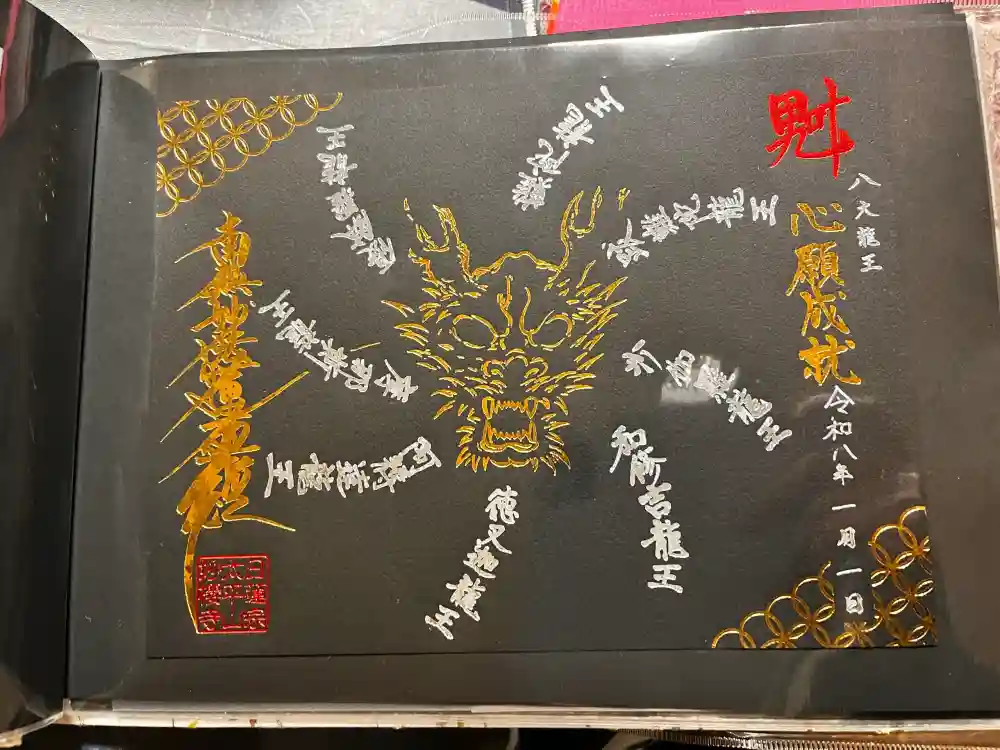 八大龍王
心願成就
令和八年一月一日
難陀龍王
跋難陀龍王
羅龍王
和修吉龍王
徳叉迦龍王
阿耨達龍王
摩那斯龍王
優鉢羅龍王
南無妙法蓮華経
日蓮宗
太平山
妙櫻寺